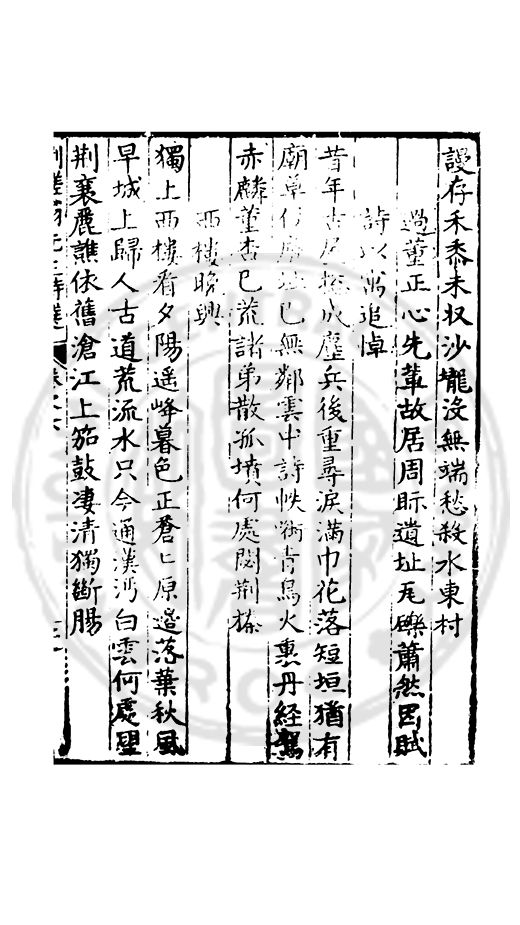 謾存禾黍未収沙壠没無端愁殺水東村
過董正心先輩故居周眎遺址瓦礫蕭然因賦
詩以寓追悼
昔年古成塵兵後重尋淚滿巾花落短垣猶有
廟草已無鄰雲中詩帙衘青鳥火裏丹經駕
赤麟董杏已荒諸弟散孤墳何處閟荆榛
西樓晚興
獨上西樓看夕陽遥峰暮色正蒼〻原邉落葉秋風
早城上歸人古道荒流水只今通漢沔白雲何處望
荆襄麗譙依舊滄江上笳鼓凄清獨斷腸